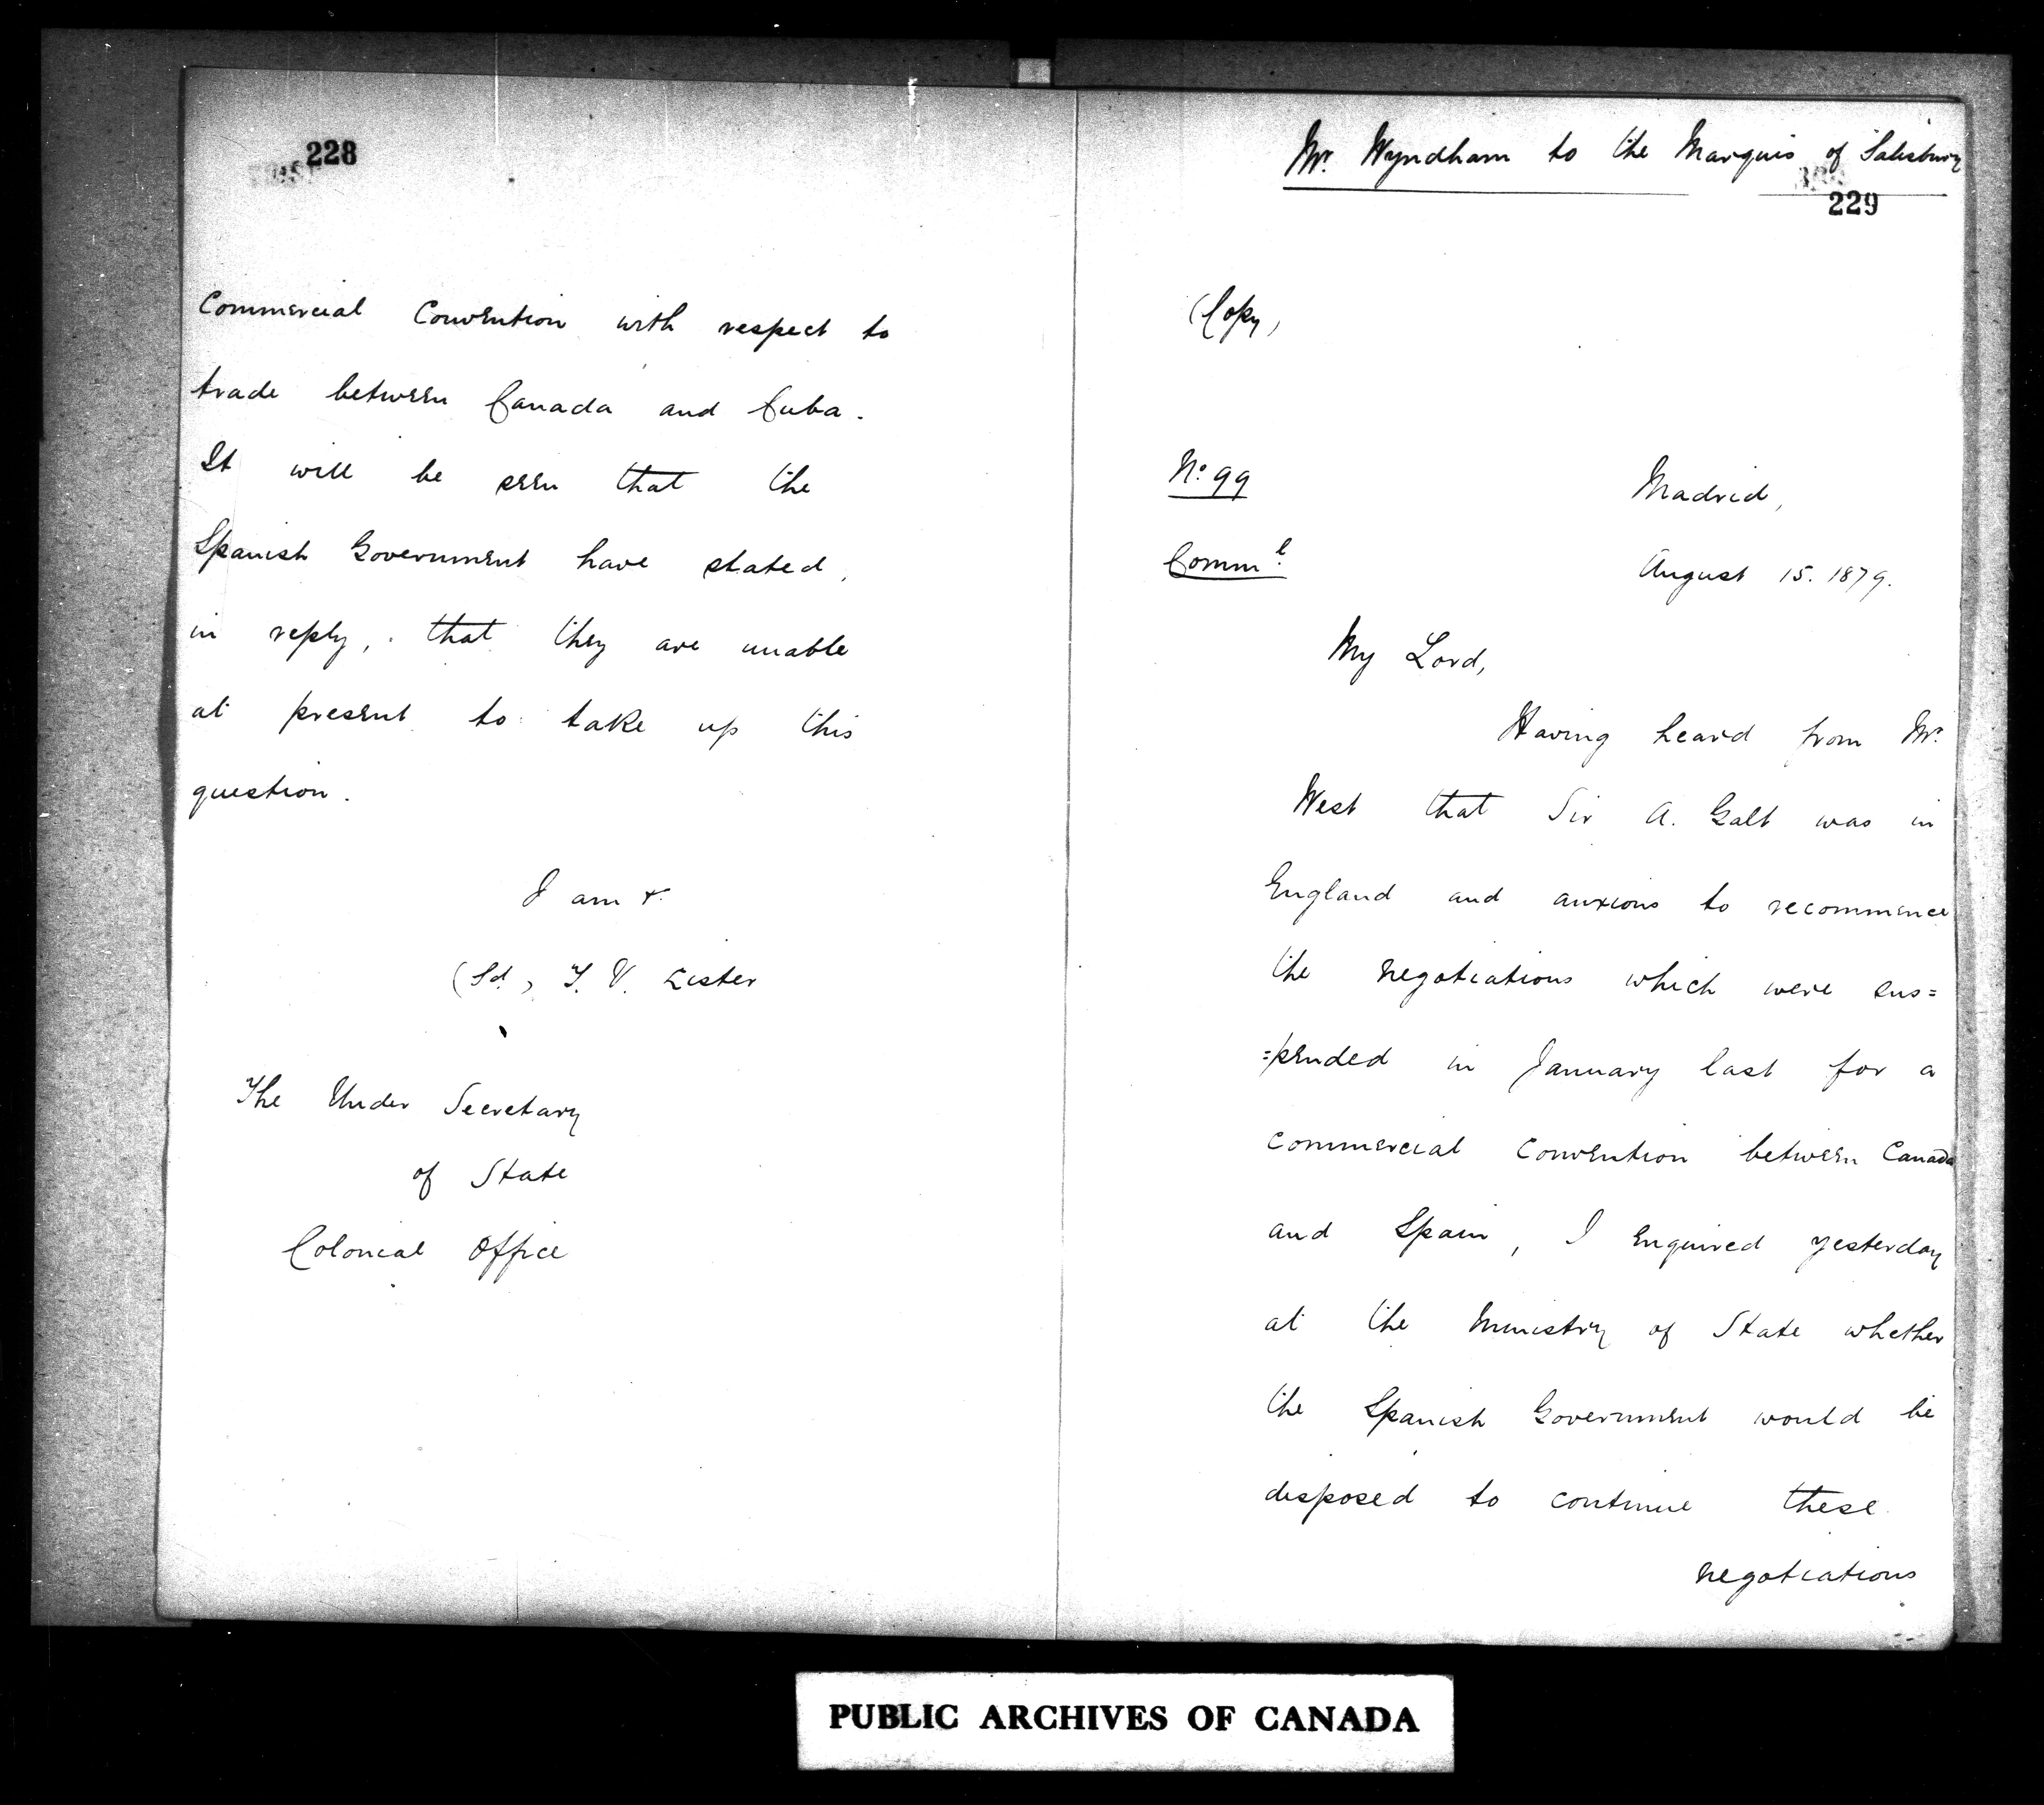 228
Commercial Convention with respect to
trade between Canada and Cuba.
It will be seen that the
Spanish Government have stated,
in reply, that they are unable
at present to take up this
question.
I am &.
(Sd, T. V. Lister
The Under Secretary
of State
Colonial Office
Mr. Wyndham to the Marquis of Salisbury
229
(Copy)
No. 99
Comm.l
Madrid,
August 15. 1879.
My Lord,
Having heard from Mr.
West that Sir A. Galt was in
England and anxious to recommence
the negotiations which were sus=
=pended in January last for a
commercial convention between Canada
and Spain, I enquired yesterday
at the Ministry of State whether
the Spanish Government would be
disposed to continue these
negotiations
PUBLIC ARCHIVES OF CANADA